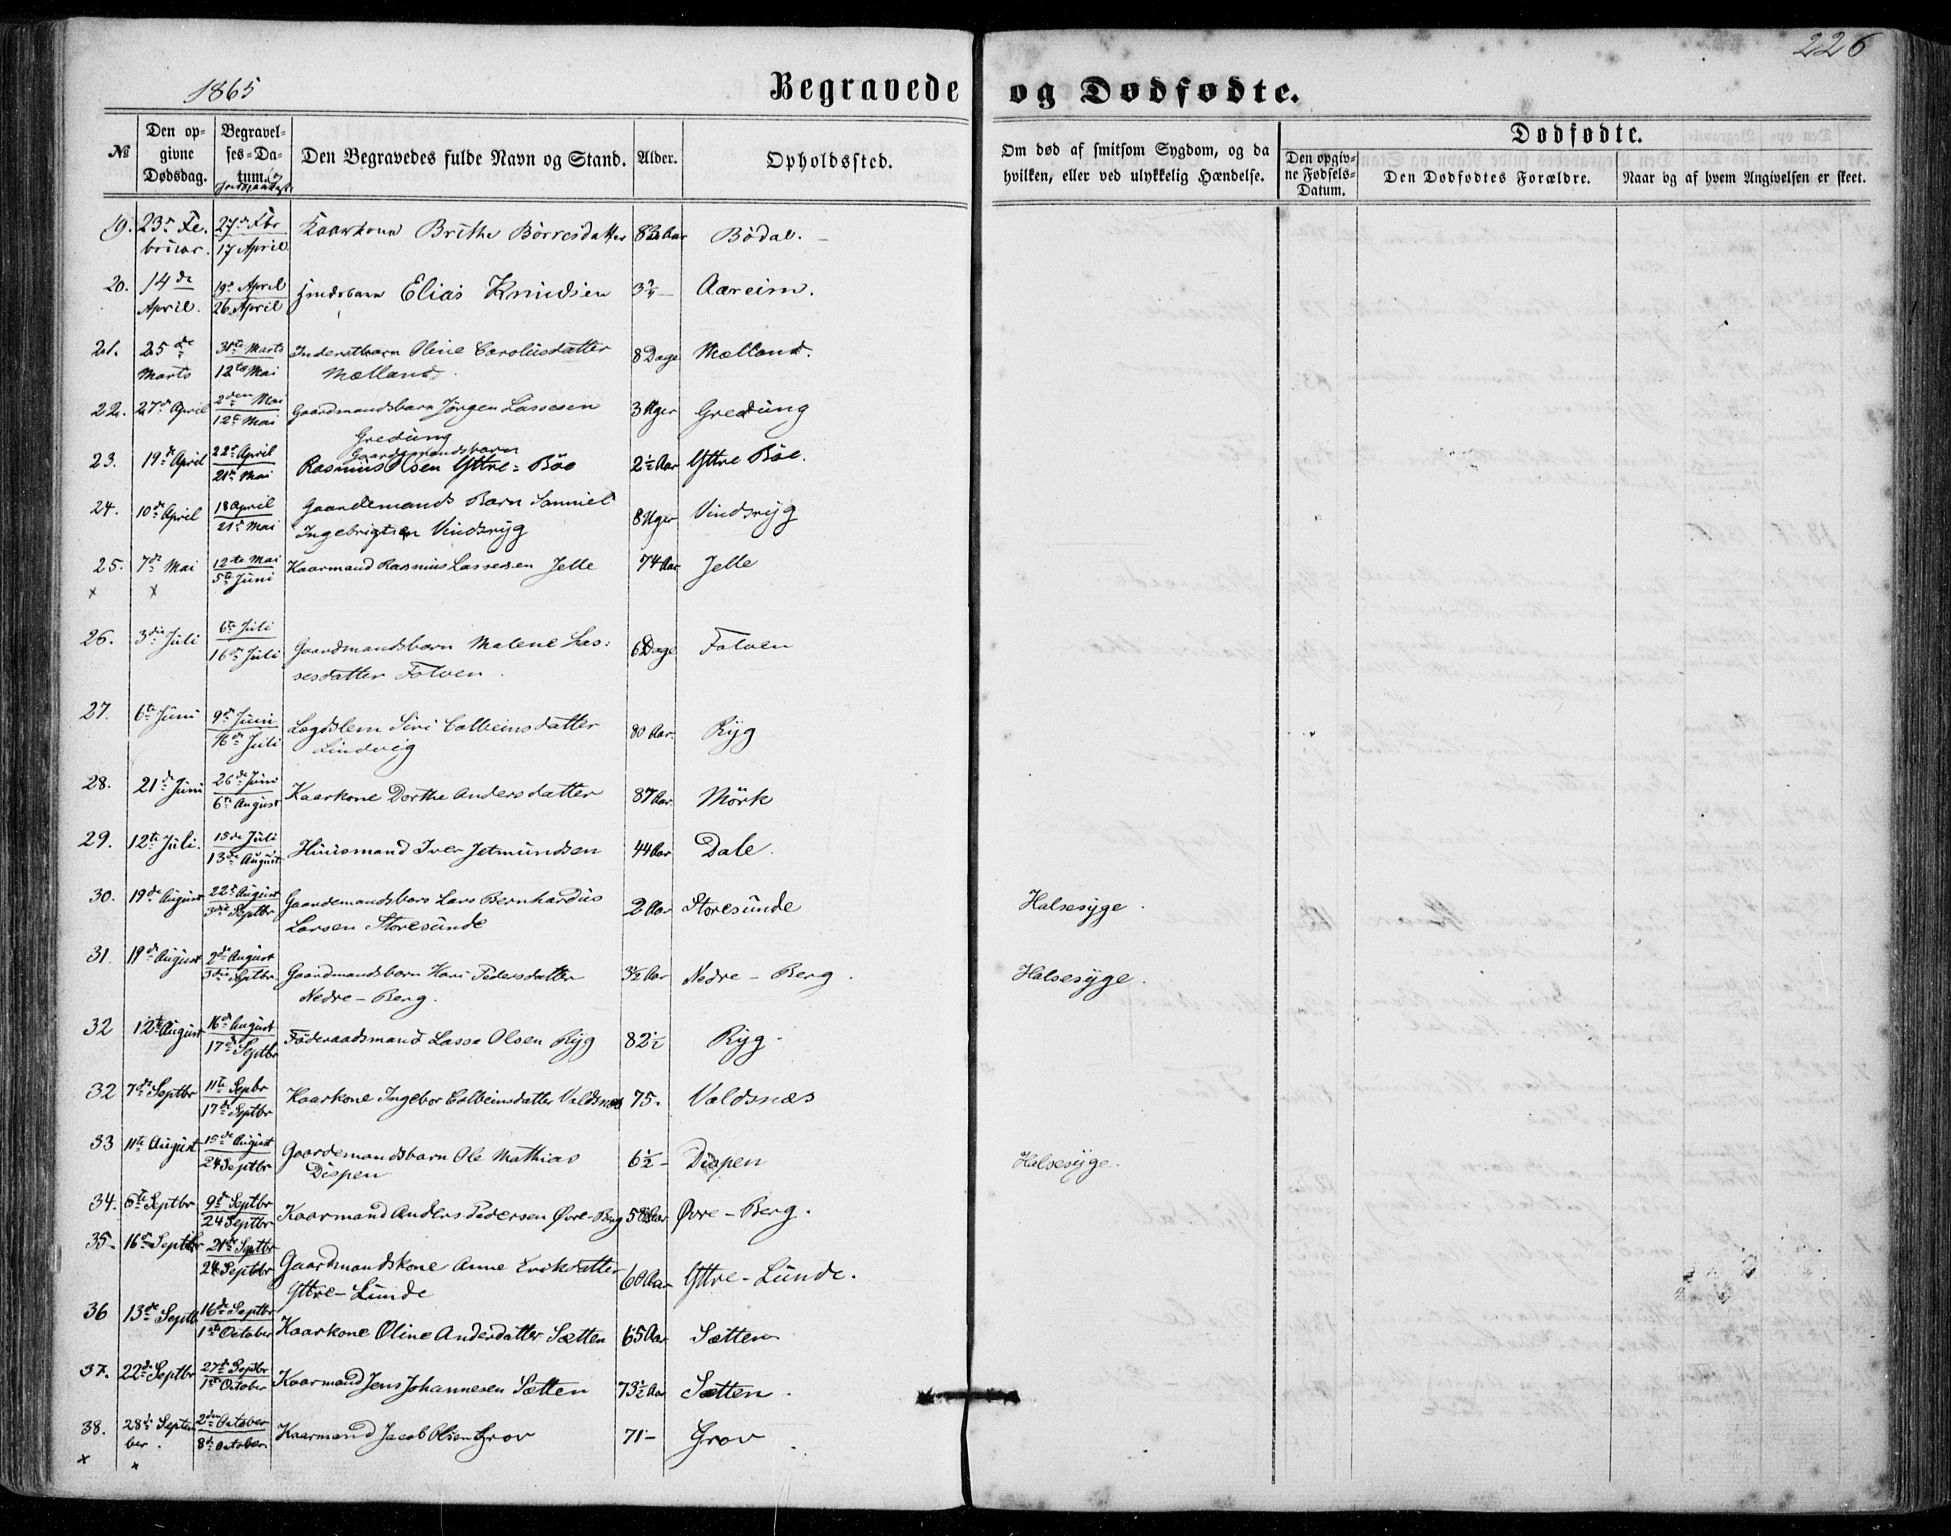 226
1865
Begravede og Dødfødte.
№
Den op-
givne
Dødsdag.
Begravel-
ses-Da-
tum.
Den Begravedes fulde Navn og Stand.
Alder.
Opholdssted.
Om død af smitsom Sygdom, og da
hvilken, eller ved ulykkelig Hændelse.
Dødfødte.
Den opgiv-
ne Fødsels-
Datum.
Den Dødfødtes Forældre.
Naar og af hvem Angivelsen er skeet.
19. 23de Fe- 27de Fbr Kaarkone Brithe Börresdatter Aar Bödal.
bruar. 17 April
20. 14de 19de April Elias Knudsen Aareim.
April. 26 April
21. 25de 31te Marts Inderstbarn Oline Carolusdatter 8 Dage Mælland.
Marts 12te Mai Mælland.
22. 27de April 2den Mai Gaardmandsbarn Jörgen Lassesen 3 Uger Gredung
12te Mai Gredung
23. 19de April 22de April Gaardemandsbarn
21de Mai Rasmus Olsen Yttre-Böe 2½ Aar Yttre Böe.
24. 10de April 18 April Gaardemands Barn Samuel 8 Uger Vindsryg
21de Mai Ingebrigtsen Vindsryg
25. 7de Mai 12te Mai Kaarmand Rasmus Lassesen Jelle 74 Aar Jelle
x x 5te Juni
26. 3die Juli 6te Juli Gaardmandsbarn Malene Las: 6 Dage Folven
16de Juli sesdatter Folven.
27. 6te Juni 9de Juni Lægdslem Siri Colbeinsdatter 80 Aar. Ryg
16de Juli Lindvig
28. 21de Juni 26de Juni Kaarkone Dorthe Andersdatter 87 Aar. Mörk
6te August
29. 12te Juli. 15de Juli Huusmand Iver Jetmundsen 44 Aar Dale.
13de August
30. 19de August 22de August Gaardemandsbarn Lars Bernhardus 2 Aar Storesunde Halsesyge.
3die Septbr Larsen Storesunde
31. 19de August 2de August Gaardmandsbarn Kari Pedersdatter 3½ Aar Nedre-Berg. Halsesyge.
3die Septbr Nedre-Berg.
32 12te August 16de August Föderaadsmand Lasse Olsen Ryg 82½ Ryg.
17de Septbr
32 7de Septbr 11te Sepbr Kaarkone Ingebor Colbeinsdatter Valdsnæs 75. Valdsnæs
17de Septbr
33 11te August 15de August Gaardemandsbarn Ole Mathias 6½ - Dispen Halsesyge.
24 Septbr Dispen
34. 6te Septbr 9de Septbr Kaarmand Anders Pedersen Øvre-Berg Aar Øvre-Berg.
24 Septbr
35. 16de Septbr 21de Septbr Gaardmandskone Anne Eriksdatter 60 Aar Yttre-Lunde.
24 Septbr Yttre-Lunde
36 13de Septb 16de Septbr Kaarkone Oline Andersdatter Sætten 65 Aar Sætten
1ste October
37. 22de Septbr 27de Septbr Kaarmand Jens Johannesen Sætten 73½ Aar Sætten.
1ste October
38. 28de Septem 2den October Kaarmand Jacob Olsen Grov 71- Grov.
ber. 8de October
x x